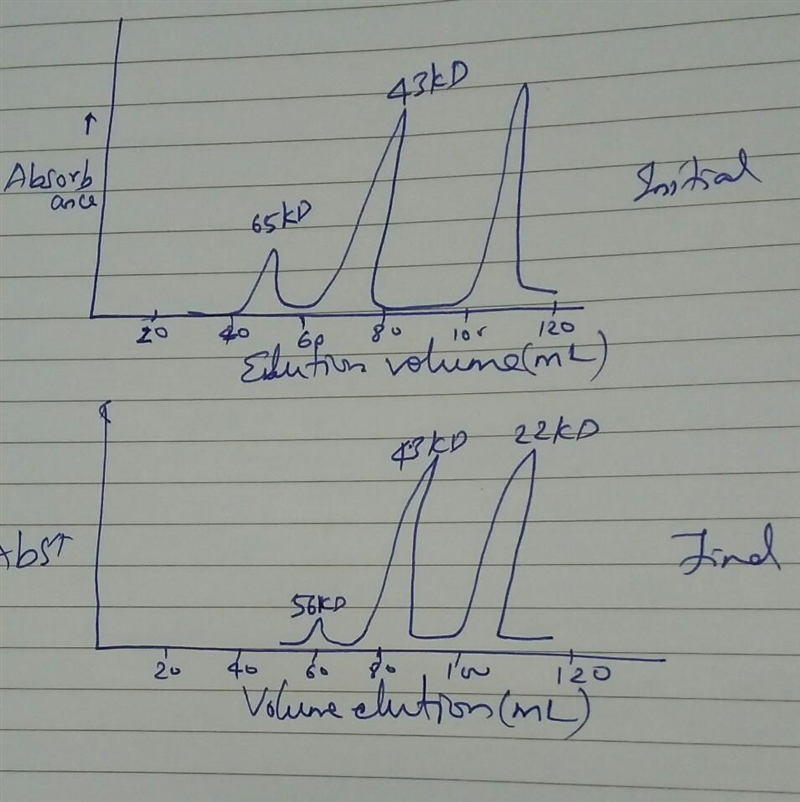 43KD
↑
Absorb
ance
Initial
65KD
20 40 60 80 100 120
Elution volume(mL)
43KD 22KD
Abs↑
Final
56KD
20 40 60 80 100 120
Volume elution(mL)